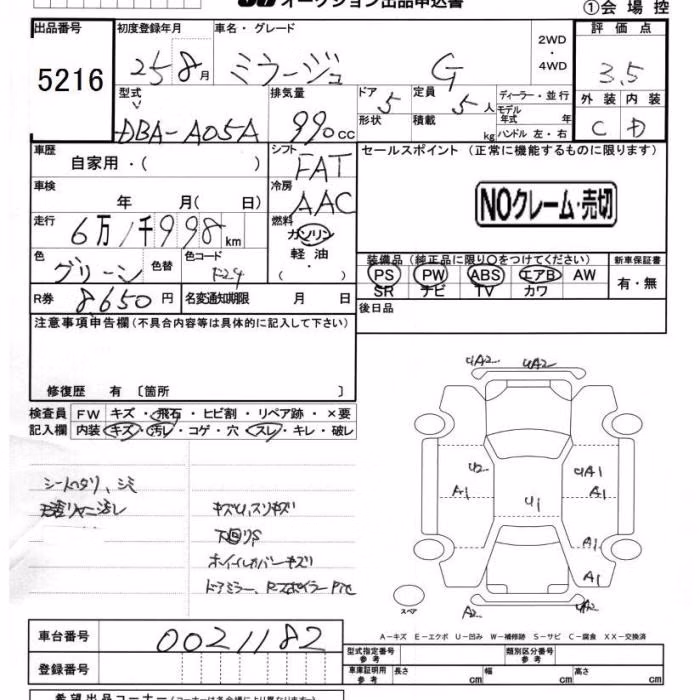 オークション出品申込書
①会場控
出品番号
5216
初度登録年月
25 8月
車名・グレード
ミラージュ G
2WD
・
4WD
評価点
3.5
型式
DBA-A05A
排気量
990cc
ドア 5
形状
定員 5人
積載 kg
ディーラー・並行
モデル
年式 年
ハンドル 左・右
外装 内装
C D
車歴
自家用・( )
シフト
FAT
セールスポイント (正常に機能するものに限ります)
NOクレーム・売切
車検
年 月( 日)
冷房
AAC
走行
6万1千998km
燃料
ガソリン
軽油
・( )
色
グリーン
色替
色コード
F24
装備品(純正品に限り○をつけてください)
新車保証書
PS PW ABS エアB AW
SR ナビ TV カワ
有・無
R券 8,650円
名変通知期限 月 日
後日品
注意事項申告欄(不具合内容等は具体的に記入して下さい)
修復歴 有 〔箇所 〕
検査員 FW キズ・飛石・ヒビ割・リペア跡・×要
記入欄 内装 キズ・汚レ・コゲ・穴・スレ・キレ・破レ
シートヘタリ、シミ
キズU、スリキズ
下回りS
ホイールカバーキズ
ドアミラー、Rスポイラー
UA2 UA2
U2 UA1
A1 U1 A1
A1
A1
A2 A1
スペア
A-キズ E-エクボ U-凹み W-補修跡 S-サビ C-腐食 XX-交換済
車台番号
0021182
登録番号
型式指定番号
参考
類別区分番号
参考
車庫証明用
参考
長さ cm 幅 cm 高さ cm
希望出品コーナー(コーナーは各会場により異なります)